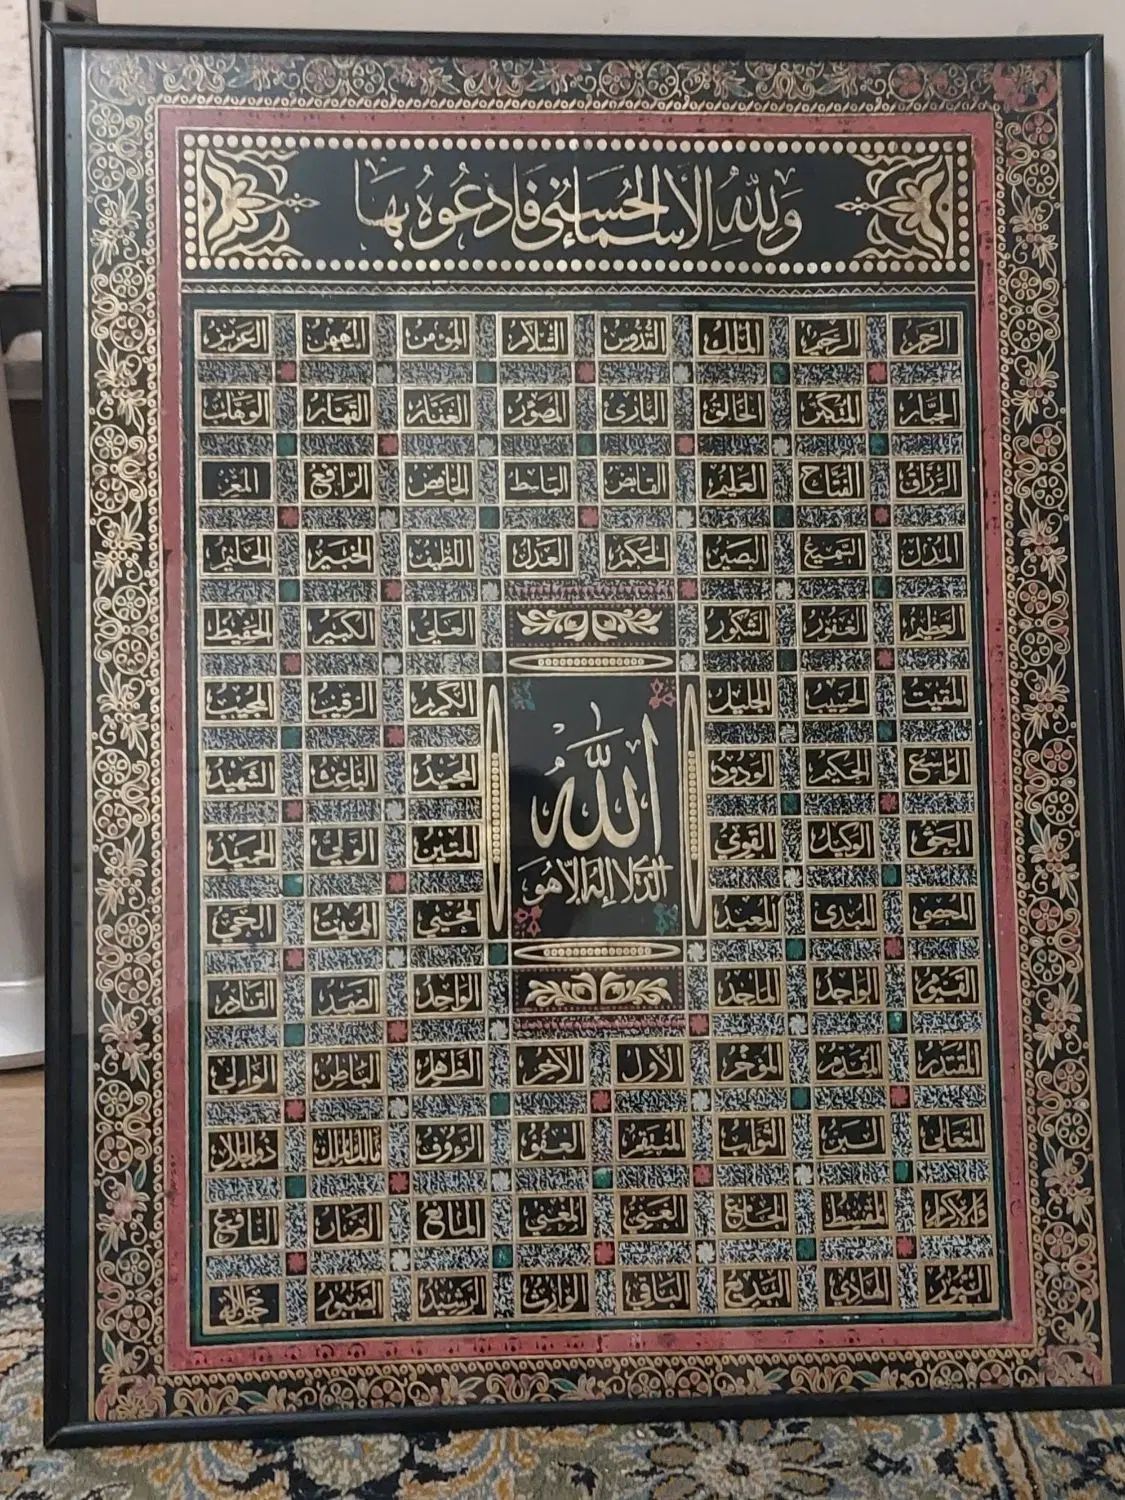 وَلِلَّهِ الأَسْمَاءُ الحُسْنَى فَادْعُوهُ بِهَا
الرحمن الرحيم الملك القدوس السلام المؤمن المهيمن العزيز
الجبار المتكبر الخالق البارئ المصور الغفار القهار الوهاب
الرزاق الفتاح العليم القابض الباسط الخافض الرافع المعز
المذل السميع البصير الحكم العدل اللطيف الخبير الحليم
العظيم الغفور الشكور العلي الكبير الحفيظ
المقيت الحسيب الجليل الكريم الرقيب المجيب
الواسع الحكيم الودود المجيد الباعث الشهيد
الله
الذي لا إله إلا هو
الحق الوكيل القوي المتين الولي الحميد
المحصي المبدئ المعيد المحيي المميت الحي
القيوم الواجد الماجد الواحد الصمد القادر
المقتدر المقدم المؤخر الأول الآخر الظاهر الباطن الوالي
المتعالي البر التواب المنتقم العفو الرءوف مالك الملك ذوالجلال
والاكرام المقسط الجامع الغني المغني المانع الضار النافع
النور الهادي البديع الباقي الوارث الرشيد الصبور جل جلاله